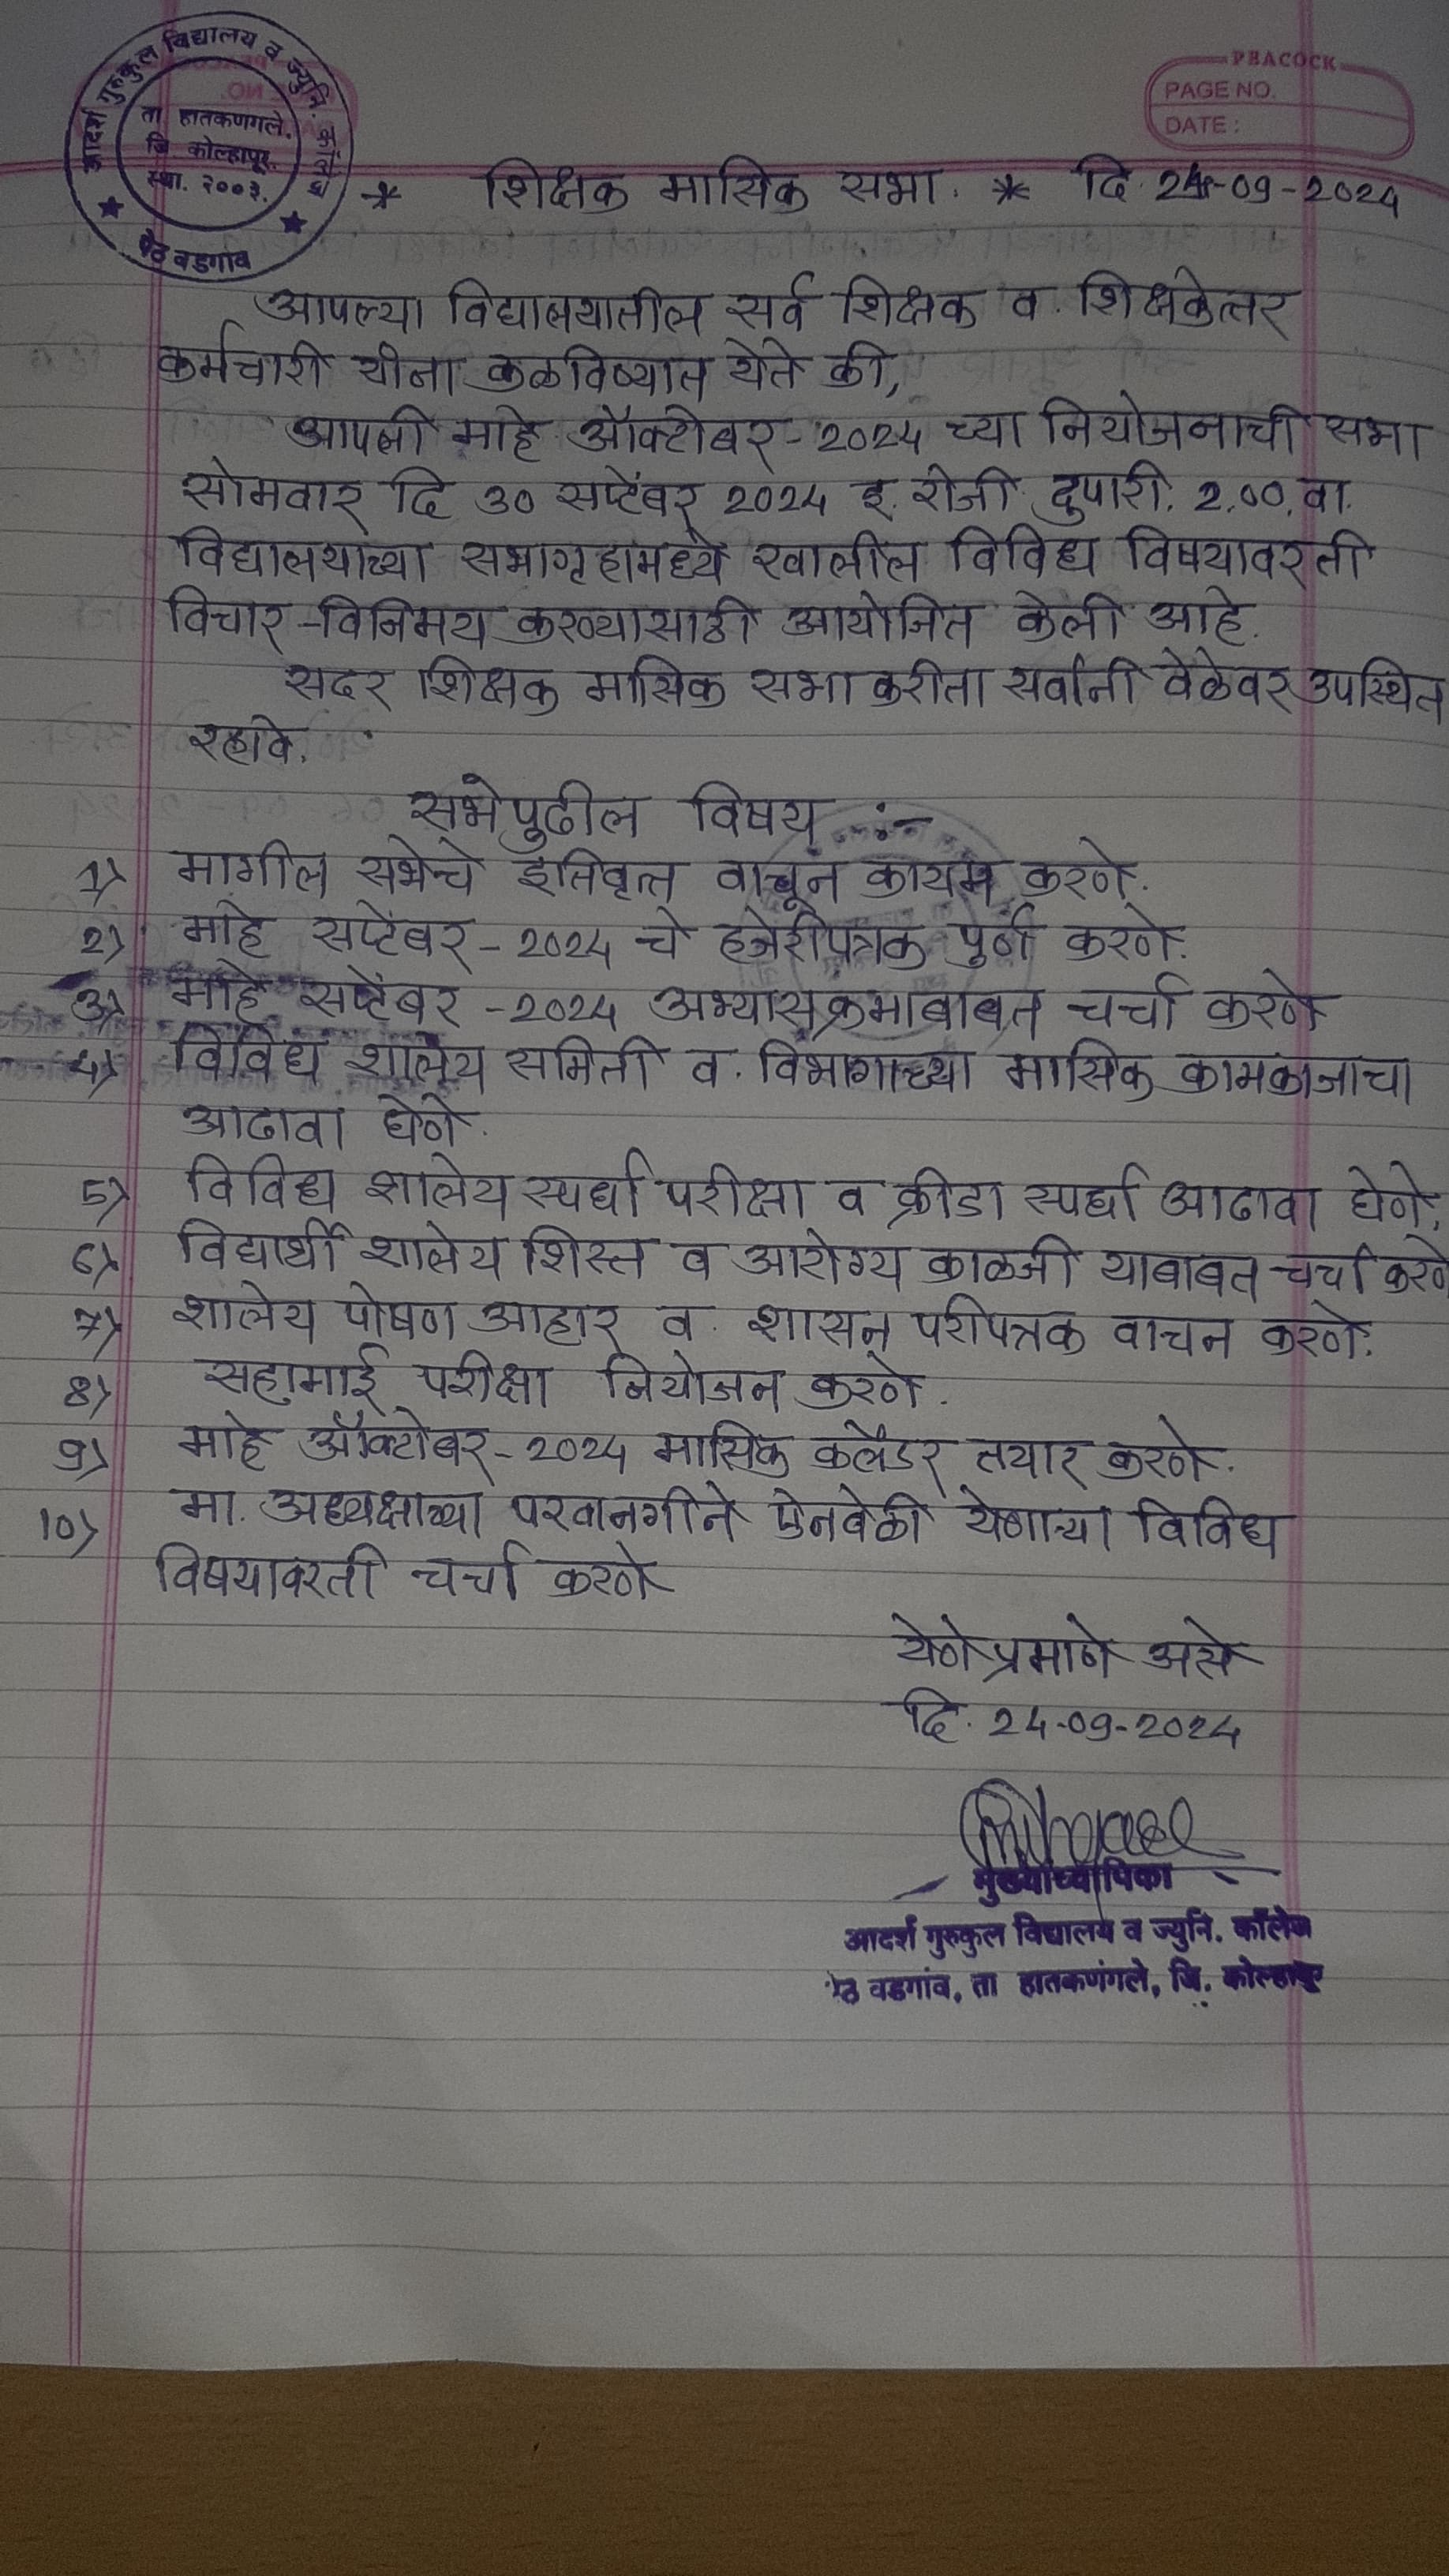 आदर्श गुरुकुल विद्यालय व ज्युनि.
ता हातकणंगले.
जि. कोल्हापूर.
स्था. २००३.
पेठ वडगांव
PEACOCK
PAGE NO.
DATE :
* शिक्षक मासिक सभा. * दि. 24-09-2024
आपल्या विद्यालयातील सर्व शिक्षक व. शिक्षकेत्तर
कर्मचारी यांना कळविण्यात येते की,
आपली माहे ऑक्टोबर - 2024 च्या नियोजनाची सभा
सोमवार दि 30 सप्टेंबर 2024 इ. रोजी दुपारी. 2.00. वा.
विद्यालयाच्या सभागृहामध्ये खालील विविध विषयावरती
विचार-विनिमय करण्यासाठी आयोजित केली आहे.
सदर शिक्षक मासिक सभाकरीता सर्वांनी वेळेवर उपस्थित
रहावे.
सभेपुढील विषय :-
1) मागील सभेचे इतिवृत्त वाचून कायम करणे.
2) माहे सप्टेंबर - 2024 चे हजेरीपत्रक पुर्ण करणे.
3) माहे सप्टेंबर - 2024 अभ्यासक्रमाबाबत चर्चा करणे
4) विविध शालेय समिती व. विभागाच्या मासिक कामकाजाचा
आढावा घेणे.
5) विविध शालेय स्पर्धा परीक्षा व क्रीडा स्पर्धा आढावा घेणे.
6) विद्यार्थी शालेय शिस्त व आरोग्य काळजी याबाबत चर्चा करणे
7) शालेय पोषण आहार व. शासन परीपत्रक वाचन करणे.
8) सहामाई परीक्षा नियोजन करणे.
9) माहे ऑक्टोबर - 2024 मासिक कलेंडर तयार करणे.
10) मा. अध्यक्षाच्या परवानगीने ऐनवेळी येणाऱ्या विविध
विषयावरती चर्चा करणे
येणेप्रमाणे असे
दि. 24-09-2024
मुख्याध्यापिका
आदर्श गुरुकुल विद्यालय व ज्युनि. कॉलेज
पेठ वडगांव, ता हातकणंगले, जि. कोल्हापूर